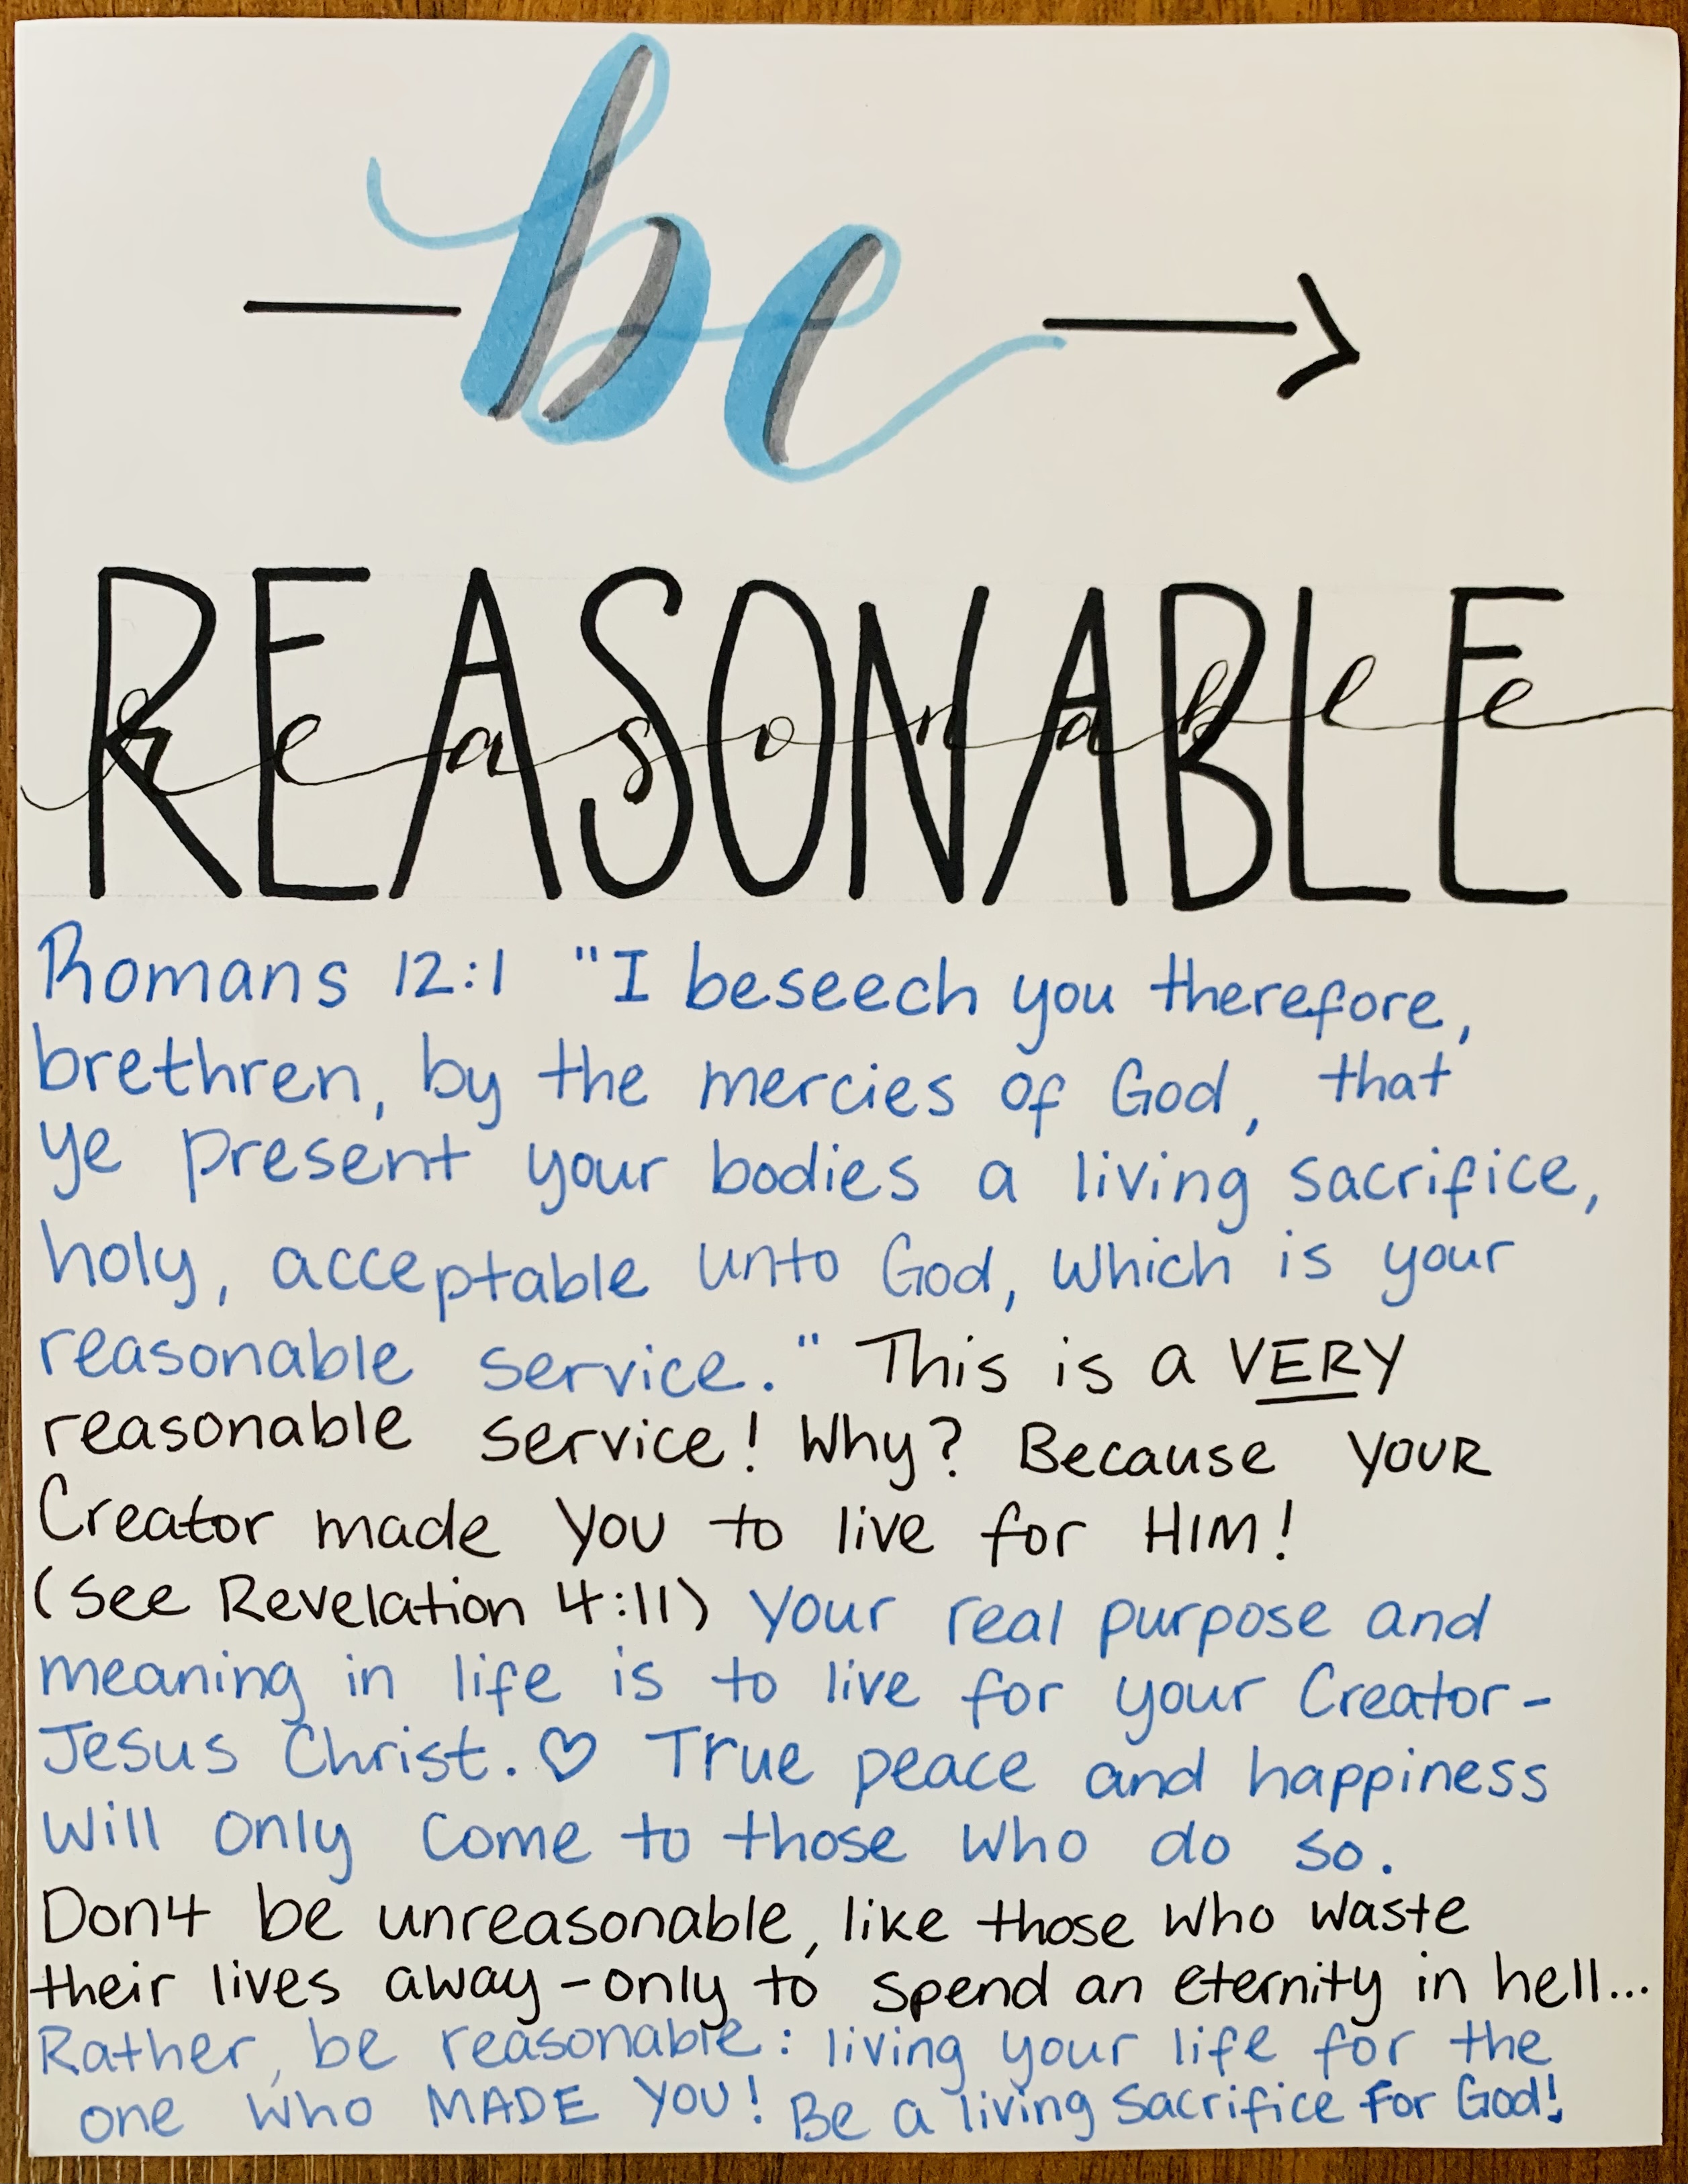 be
REASONABLE
reasonable
Romans 12:1 "I beseech you therefore,
brethren, by the mercies of God, that
ye present your bodies a living sacrifice,
holy, acceptable unto God, which is your
reasonable service." This is a VERY
reasonable service! Why? Because YOUR
Creator made YOU to live for HIM!
(see Revelation 4:11) Your real purpose and
meaning in life is to live for your Creator-
Jesus Christ.♡ True peace and happiness
will only come to those who do so.
Don't be unreasonable, like those who waste
their lives away-only to spend an eternity in hell...
Rather, be reasonable: living your life for the
one who MADE YOU! Be a living sacrifice for God!